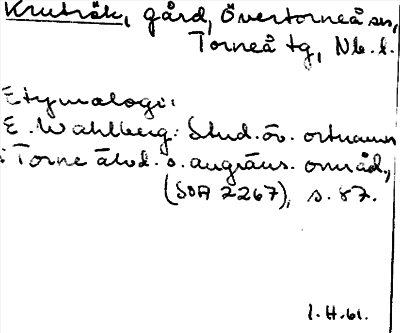 Kruträk, gård, Övertorneå sn,
Torneå tg, Nb. l.
Etymologi:
E. Wahlberg: Stud. öv. ortnamn
i Torne älvd. o. angräns. områd.,
(SOA 2267), s. 87.
I.H.61.